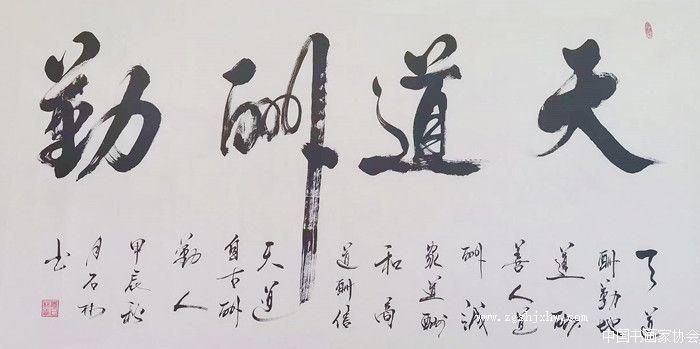 天道酬勤
天道
酬勤地
道酬
善人道
酬诚
家道酬
和商
道酬信
天道
自古酬
勤人
甲辰秋
月石
书
www.zgshjxhw.com
中国书画家协会